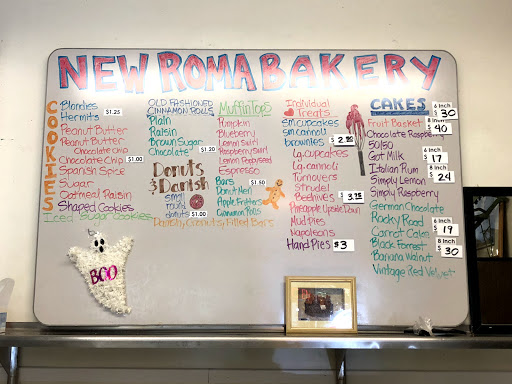 NEW ROMA BAKERY
COOKIES
Blondies
Hermits
$1.25
Peanut Butter
Peanut Butter
Chocolate Chip
Chocolate Chip
$1.00
Spanish Spice
Sugar
Oatmeal Raisin
Shaped Cookies
Iced Sugar Cookies
BOO
OLD FASHIONED
CINNAMON ROLLS
Plain
Raisin
Brown Sugar
Chocolate
$1.20
Donuts
& Danish
small
donuts
$1.00
Danish, Donuts, Filled Bars
Muffin Tops
Pumpkin
Blueberry
Lemon Swirl
Raspberry Swirl
Lemon Poppyseed
Espresso
Bars
$1.50
Donut Men
Apple Fritters
Cinnamon Rolls
Individual
Treats
sm.cupcakes
sm.cannoli
brownies
Lg.cupcakes
Lg.cannoli
Turnovers
Strudel
Beehives
Pineapple Upside Down
Mud Pies
Napoleons
Hand Pies
$3
CAKES
6 Inch
$30
Fruit Basket
8 Inch
$40
Chocolate
50/50
Got Milk
6 Inch
$17
Italian Rum
Simply Lemon
8 Inch
$24
Simply Raspberry
German Chocolate
Rocky Road
6 Inch
$19
Carrot Cake
Black Forrest
8 Inch
$30
Banana Walnut
Vintage Red Velvet